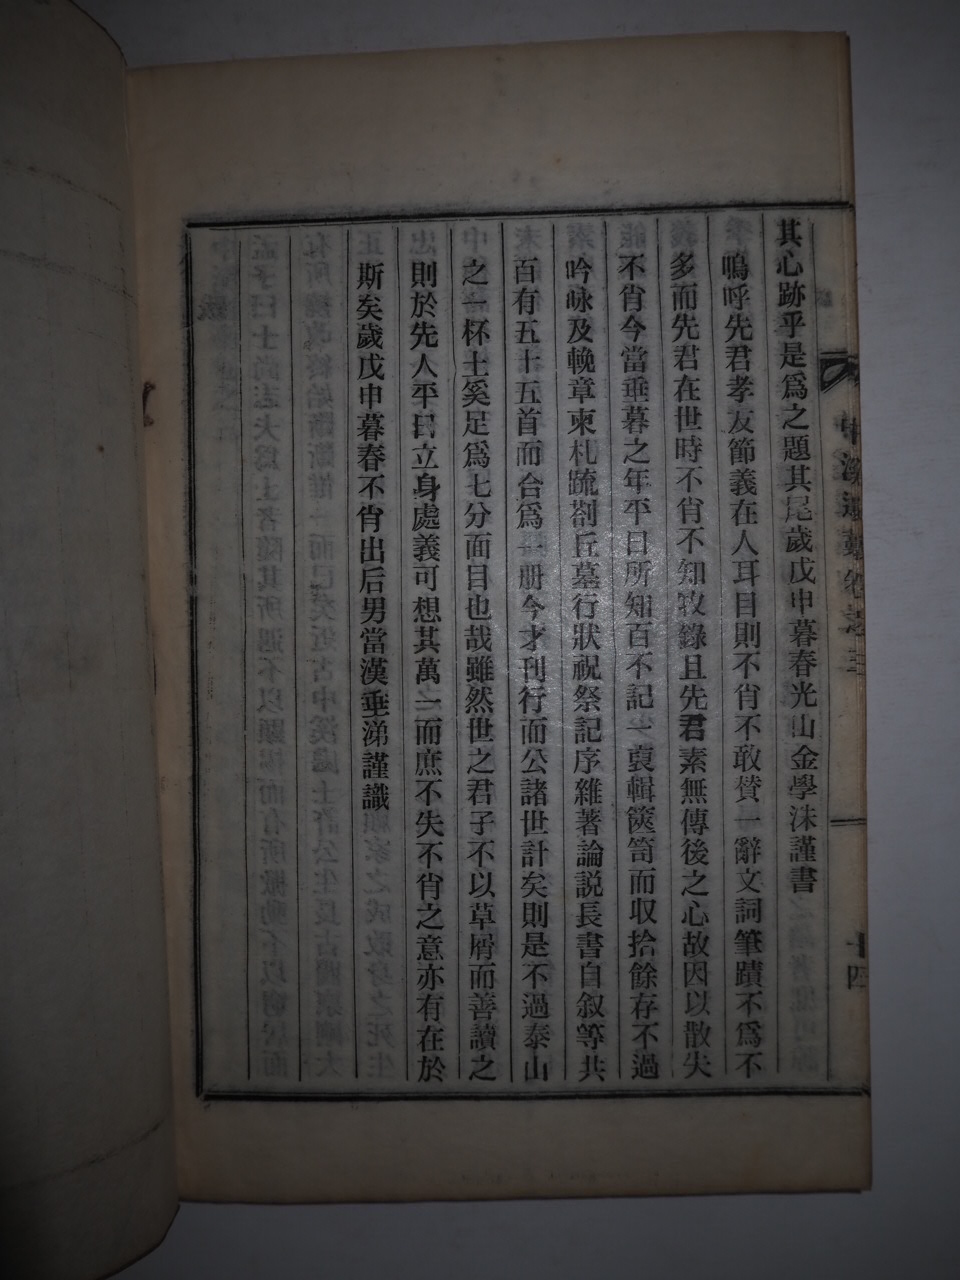 其心跡乎是爲之題其尾歲戊申暮春光山金學洙謹書
嗚呼先君孝友節義在人耳目則不肖不敢贊一辭文詞筆蹟不爲不
多而先君在世時不肖不知牧錄且先君素無傳後之心故因以散失
不肖今當垂暮之年平日所知百不記一裒輯篋笥而収拾餘存不過
吟咏及輓章柬札䟽劄丘墓行狀祝祭記序雜著論説長書自叙等共
百有五十五首而合爲一册今才刊行而公諸世計矣則是不過泰山
之一杯土奚足爲七分面目也哉雖然世之君子不以草屑而善讀之
則於先人平日立身處義可想其萬一而庶不失不肖之意亦有在於
斯矣歲戊申暮春不肖出后男當漢垂涕謹識
卷之三
十四